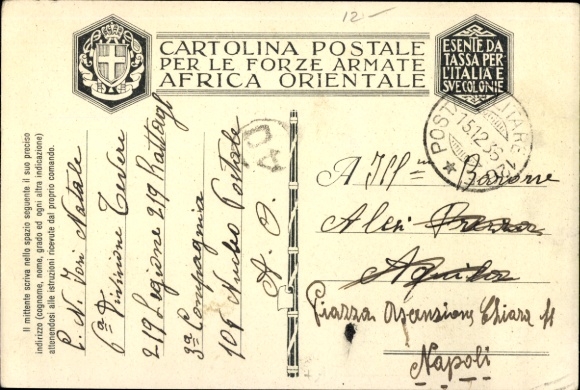 12 -
CARTOLINA POSTALE
PER LE FORZE ARMATE
AFRICA ORIENTALE
ESENTE DA
TASSA PER
L'ITALIA E
SVE COLONIE
POST ITARE
15.12.35
Il mittente scriva nello spazio seguente il suo preciso
indirizzo (cognome, nome, grado ed ogni altra indicazione)
attenendosi alle istruzioni ricevute dal proprio comando.
C. N. Natale
6ª Divisione Tevere
219 Legione 219 Battagl
3ª Compagnia
109 Nucleo Postale
A. O.
A Ill^mo Barone
Aquila
Piazza Ascensione Chiara
Napoli